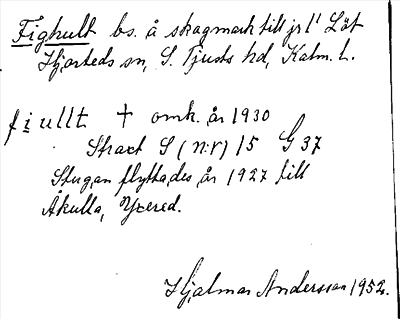 Fighult bs. å skogmark till jr l¹ Löt
Hjorteds sn, S. Tjusts hd, Kalm. L.
fiullt † omk. år 1930
Straxt S (nr) 15 G 37
Stugan flyttades år 1927 till
Åkulla, Yxered.
Hjalmar Andersson 1952.